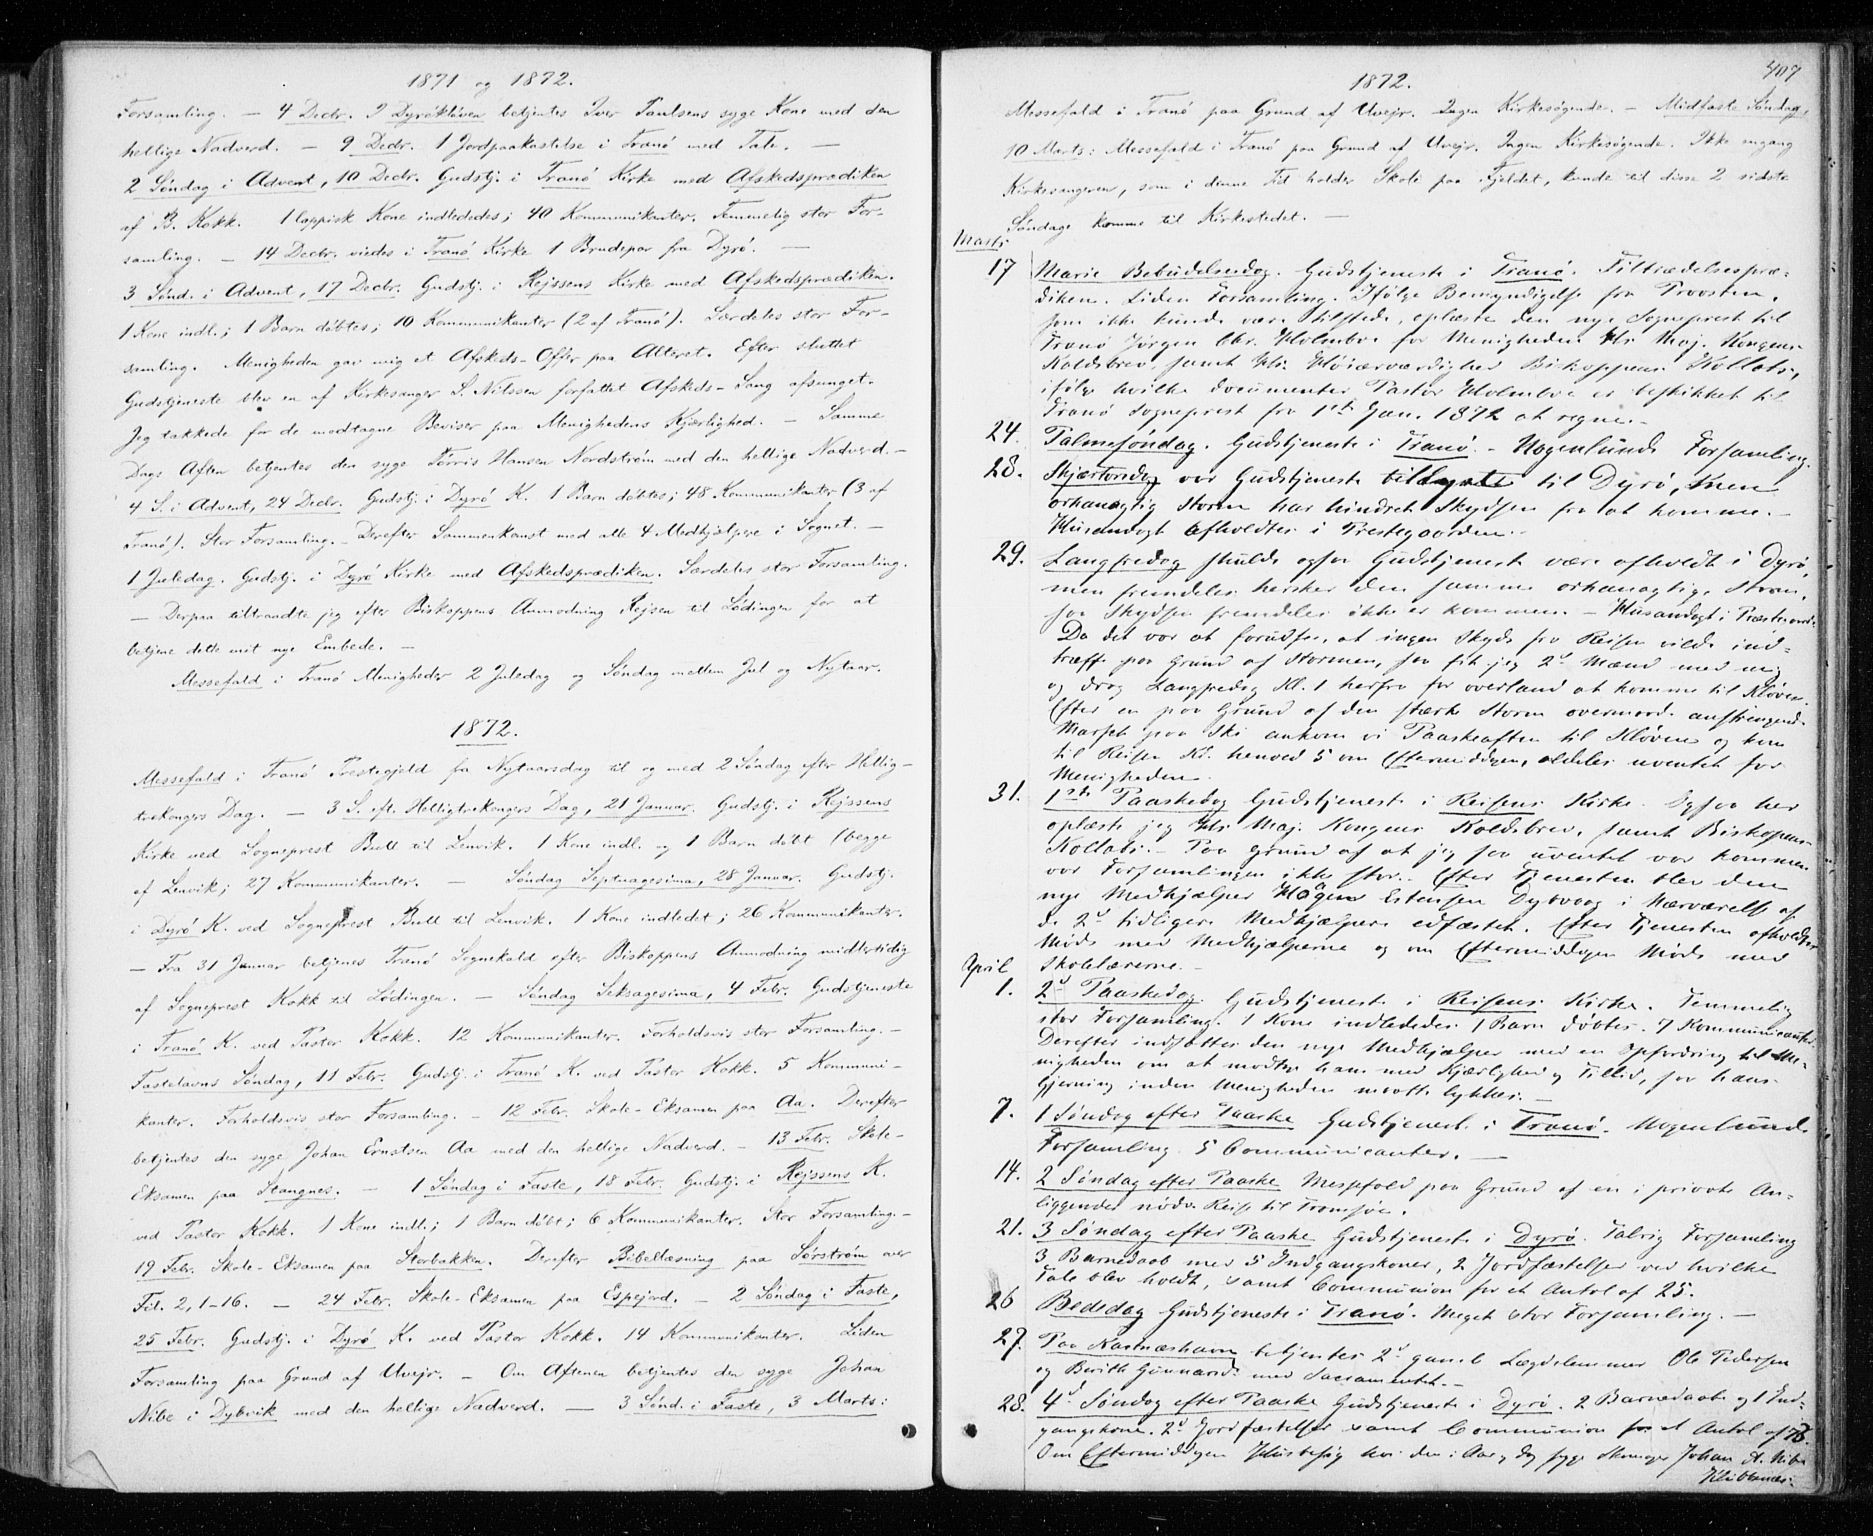 1871 og 1872.
Forsamling. — 4 Decbr. I Dyröklöven betjentes Iver Paulsens syge Kone med den
hellige Nadverd. — 9 Decbr. 1 Jordpaakastelse i Tranö med Tale. —
2 Söndag i Advent, 10 Decbr. Gudstj. i Tranö Kirke med Afskedsprædiken
af B. Kokk. 1 lappisk Kone indlededes; 40 Kommunikanter. Temmelig stor For-
samling. — 14 Decbr. viedes i Tranö Kirke 1 Brudepar fra Dyrö. —
3 Sönd. i Advent, 17 Decbr. Gudstj. i Rejssens Kirke med Afskedsprædiken.
1 Kone indl.; 1 Barn döbtes; 10 Kommunikanter (2 af Tranö). Særdeles stor For-
samling. Menigheden gav mig et Afskeds-Offer paa Alteret. Efter sluttet
Gudstjeneste blev en af Kirkesanger S. Nilssen forfattet Afskeds-Sang afsunget.
Jeg takkede for de modtagne Beviser paa Menighedens Kjærlighed. — Samme
Dags Aften betjentes den syge Törris Hansen Nordström med den hellige Nadverd. —
4 S. i Advent, 24 Decbr. Gudstj. i Dyrö K. 1 Barn döbtes; 48 Kommunikanter (3 af
Tranö). Stor Forsamling. — Derefter Sammenkomst med alle 4 Medhjælpere i Sognet. —
1 Juledag. Gudstj. i Dyrö Kirke med Afskedsprædiken. Særdeles stor Forsamling.
— Derpaa tiltraadte jeg efter Biskoppens Anmodning Rejsen til Lödingen for at
betjene dette mit nye Embede. —
Messefald i Tranö Menigheder 2 Juledag og Söndag mellem Jul og Nytaar.
1872.
Messefald i Tranö Prestegjeld fra Nytaarsdag til og med 2 Söndag efter Hellig-
trekongers Dag. — 3 S. eft. Helligtrekongers Dag, 21 Januar. Gudstj. i Rejssens
Kirke ved Sogneprest Bull til Lenvik. 1 Kone indl. og 1 Barn döbt (begge
af Lenvik; 27 Kommunikanter. — Söndag Septuagesima, 28 Januar. Gudstj.
i Dyrö K. ved Sogneprest Bull til Lenvik. 1 Kone indledet; 26 Kommunikanter.
— Fra 31 Januar betjenes Tranö Sognekald efter Biskoppens Anmodning midlertidig
af Sogneprest Kokk til Lödingen. — Söndag Seksagesima, 4 Febr. Gudstjeneste
i Tranö K. ved Pastor Kokk. 12 Kommunikanter. Forholdsvis stor Forsamling. —
Fastelavns Söndag, 11 Febr. Gudstj. i Tranö K. ved Pastor Kokk. 5 Kommuni-
kanter. Forholdsvis stor Forsamling. — 12 Febr. Skole-Eksamen paa Aa. Derefter
betjentes den syge Johan Ernstsen Aa med den hellige Nadverd. — 13 Febr. Skole-
Eksamen paa Stangnes. — 1 Söndag i Faste, 18 Febr. Gudstj. i Rejssens K.
ved Pastor Kokk. 1 Kone indl.; 1 Barn döbt; 6 Kommunikanter. Stor Forsamling. —
19 Febr. Skole-Eksamen paa Storbakken. Derefter Bibellæsning paa Sörström over
Fil. 2, 1-16. — 24 Febr. Skole-Eksamen paa Espejord. — 2 Söndag i Faste,
25 Febr. Gudstj. i Dyrö K. ved Pastor Kokk. 14 Kommunikanter. Liden
Forsamling paa Grund af Uvejr. — Om Aftenen betjentes den syge Johan
Nibe i Dybvik med den hellige Nadverd. — 3 Sönd. i Faste, 3 Marts:
1872.
407
Messefald i Tranö paa Grund af Uvejr. Ingen Kirkesögende. — Midfaste Söndag,
10 Marts: Messefald i Tranö paa Grund af Uvejr. Ingen Kirkesögende. Ikke engang
Kirkesangeren, som i denne Tid holder Skole paa Fjeldet, kunde til disse 2 sidste
Söndage komme til Kirkestedet. —
Marts
17 Marie Bebudelsesdag. Gudstjeneste i Tranö. Tiltrædelsespræ-
diken. Liden Forsamling. Ifölge Bemyndigelse fra Provsten,
som ikke kunde være tilstede, oplæste den nye Sogneprest til
Tranö Jörgen Chr. Holmboe for Menigheden Hs. Maj. Kongens
Kaldsbrev samt Hs. Höiærværdighed Biskoppens Kollats,
ifölge hvilke Documenter Pastor Holmboe er beskikket til
Tranö Sogneprest fra 1ste Jan. 1872 at regne. —
24. Palmesöndag. Gudstjeneste i Tranö. — Nogenlunde Forsamling.
28. Skjærtorsdag var Gudstjeneste tillyst til Dyrö, men
orkanagtig Storm har hindret Skydsen fra at komme. —
Husandagt afholdtes i Prestegaarden. —
29. Langfredag skulde ogsaa Gudstjeneste være afholdt i Dyrö,
men fremdeles hersker den samme orkanagtige Storm,
saa Skydsen fremdeles ikke er kommen. — Husandagt i Præstegaarden.
Da det var at forudse, at ingen Skyds fra Reisen vilde ind-
træffe paa Grund af Stormen, saa fik jeg 2 Mænd med mig
og drog Langfredag Kl. 1 herfra for overland at komme til Klöven.
Efter en paa Grund af den stærke Storm overmaade anstrengende
Marsch paa Ski ankom vi Paaskeaften til Klöven og kom
til Reisen Kl. henved 5 om Eftermiddagen, aldeles uventet for
Menigheden.
31. 1ste Paaskedag Gudstjeneste i Reisens Kirke. Ogsaa her
oplæste jeg Hs. Maj. Kongens Kaldsbrev, samt Biskoppens
Kollats. — Paa Grund af at jeg saa uventet var kommen
var Forsamlingen ikke stor. — Efter Tjenesten blev den
nye Medhjælper Hågen Estensen Dybvaag i Nærværelse af
de 2 tidligere Medhjælpere edfæstet. Efter Tjenesten afholdtes
Möde med Medhjælperne og om Eftermiddagen Möde med
Skolelærerne. —
April
1. 2 Paaskedag Gudstjeneste i Reisens Kirke. Temmelig
stor Forsamling. 1 Kone indlededes 1 Barn döbtes. 7 Kommunicanter.
Derefter indsattes den nye Medhjælper med en Opfordring til Me-
nigheden om at modtage ham med Kjærlighed og Tillid, saa hans
Gjerning inden Menigheden maatte lykkes. —
7. 1 Söndag efter Paaske Gudstjeneste i Tranö. Nogenlunde
Forsamling. 5 Communicanter. —
14. 2 Söndag efter Paaske Messefald paa Grund af en i private An-
liggender nödv. Reise til Tromsöe.
21. 3 Söndag efter Paaske Gudstjeneste i Dyrö. Talrig Forsamling
3 Barnedaab med 5 Indgangskoner, 2 Jordfæstelser ved hvilke
Tale blev holdt, samt Communion for et Antal af 25.
26 Bededag Gudstjeneste i Tranö. Meget stor Forsamling. —
27. Paa Kastnæshavn betjentes 2 gamle Lægdslemmer Ole Pedersen
og Berith Gunnarsd. med Sacramentet. —
28. 4 Söndag efter Paaske Gudstjeneste i Dyrö. 2 Barnedaab og 1 Ind-
gangskone. 2 Jordfæstelser samt Communion for et Antal af
Om Eftermiddagen Husbesög hos den i syge Johan A. Nibe